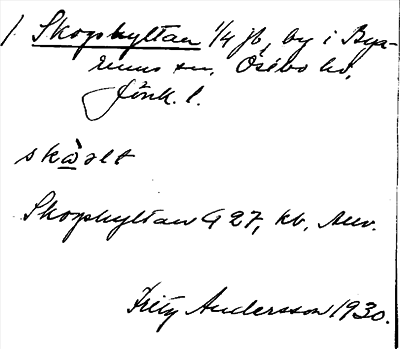 1. Skogshyltan 1/4 jb, by i Bya-
rums sn. Östbo hd,
Jönk. l.
skὼɔlt
Skogshyltan G 27, kb, Auv.
Fritz Andersson 1930.